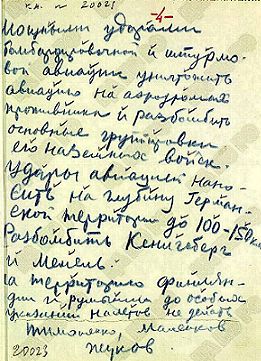 кн. № 20023
-4-
Мощными ударами
бомбардировочной и штурмо-
вой авиации уничтожить
авиацию на аэродромах
противника и разбомбить
основные группировки
его наземных войск.
Удары авиации нано-
сить на глубину Герман-
ской территории до 100-150км
Разбомбить Кенигсберг
и Мемель.
На территорию Финлян-
дии и Румынии до особых
указаний налетов не делать
Тимошенко, Маленков
Жуков
20023